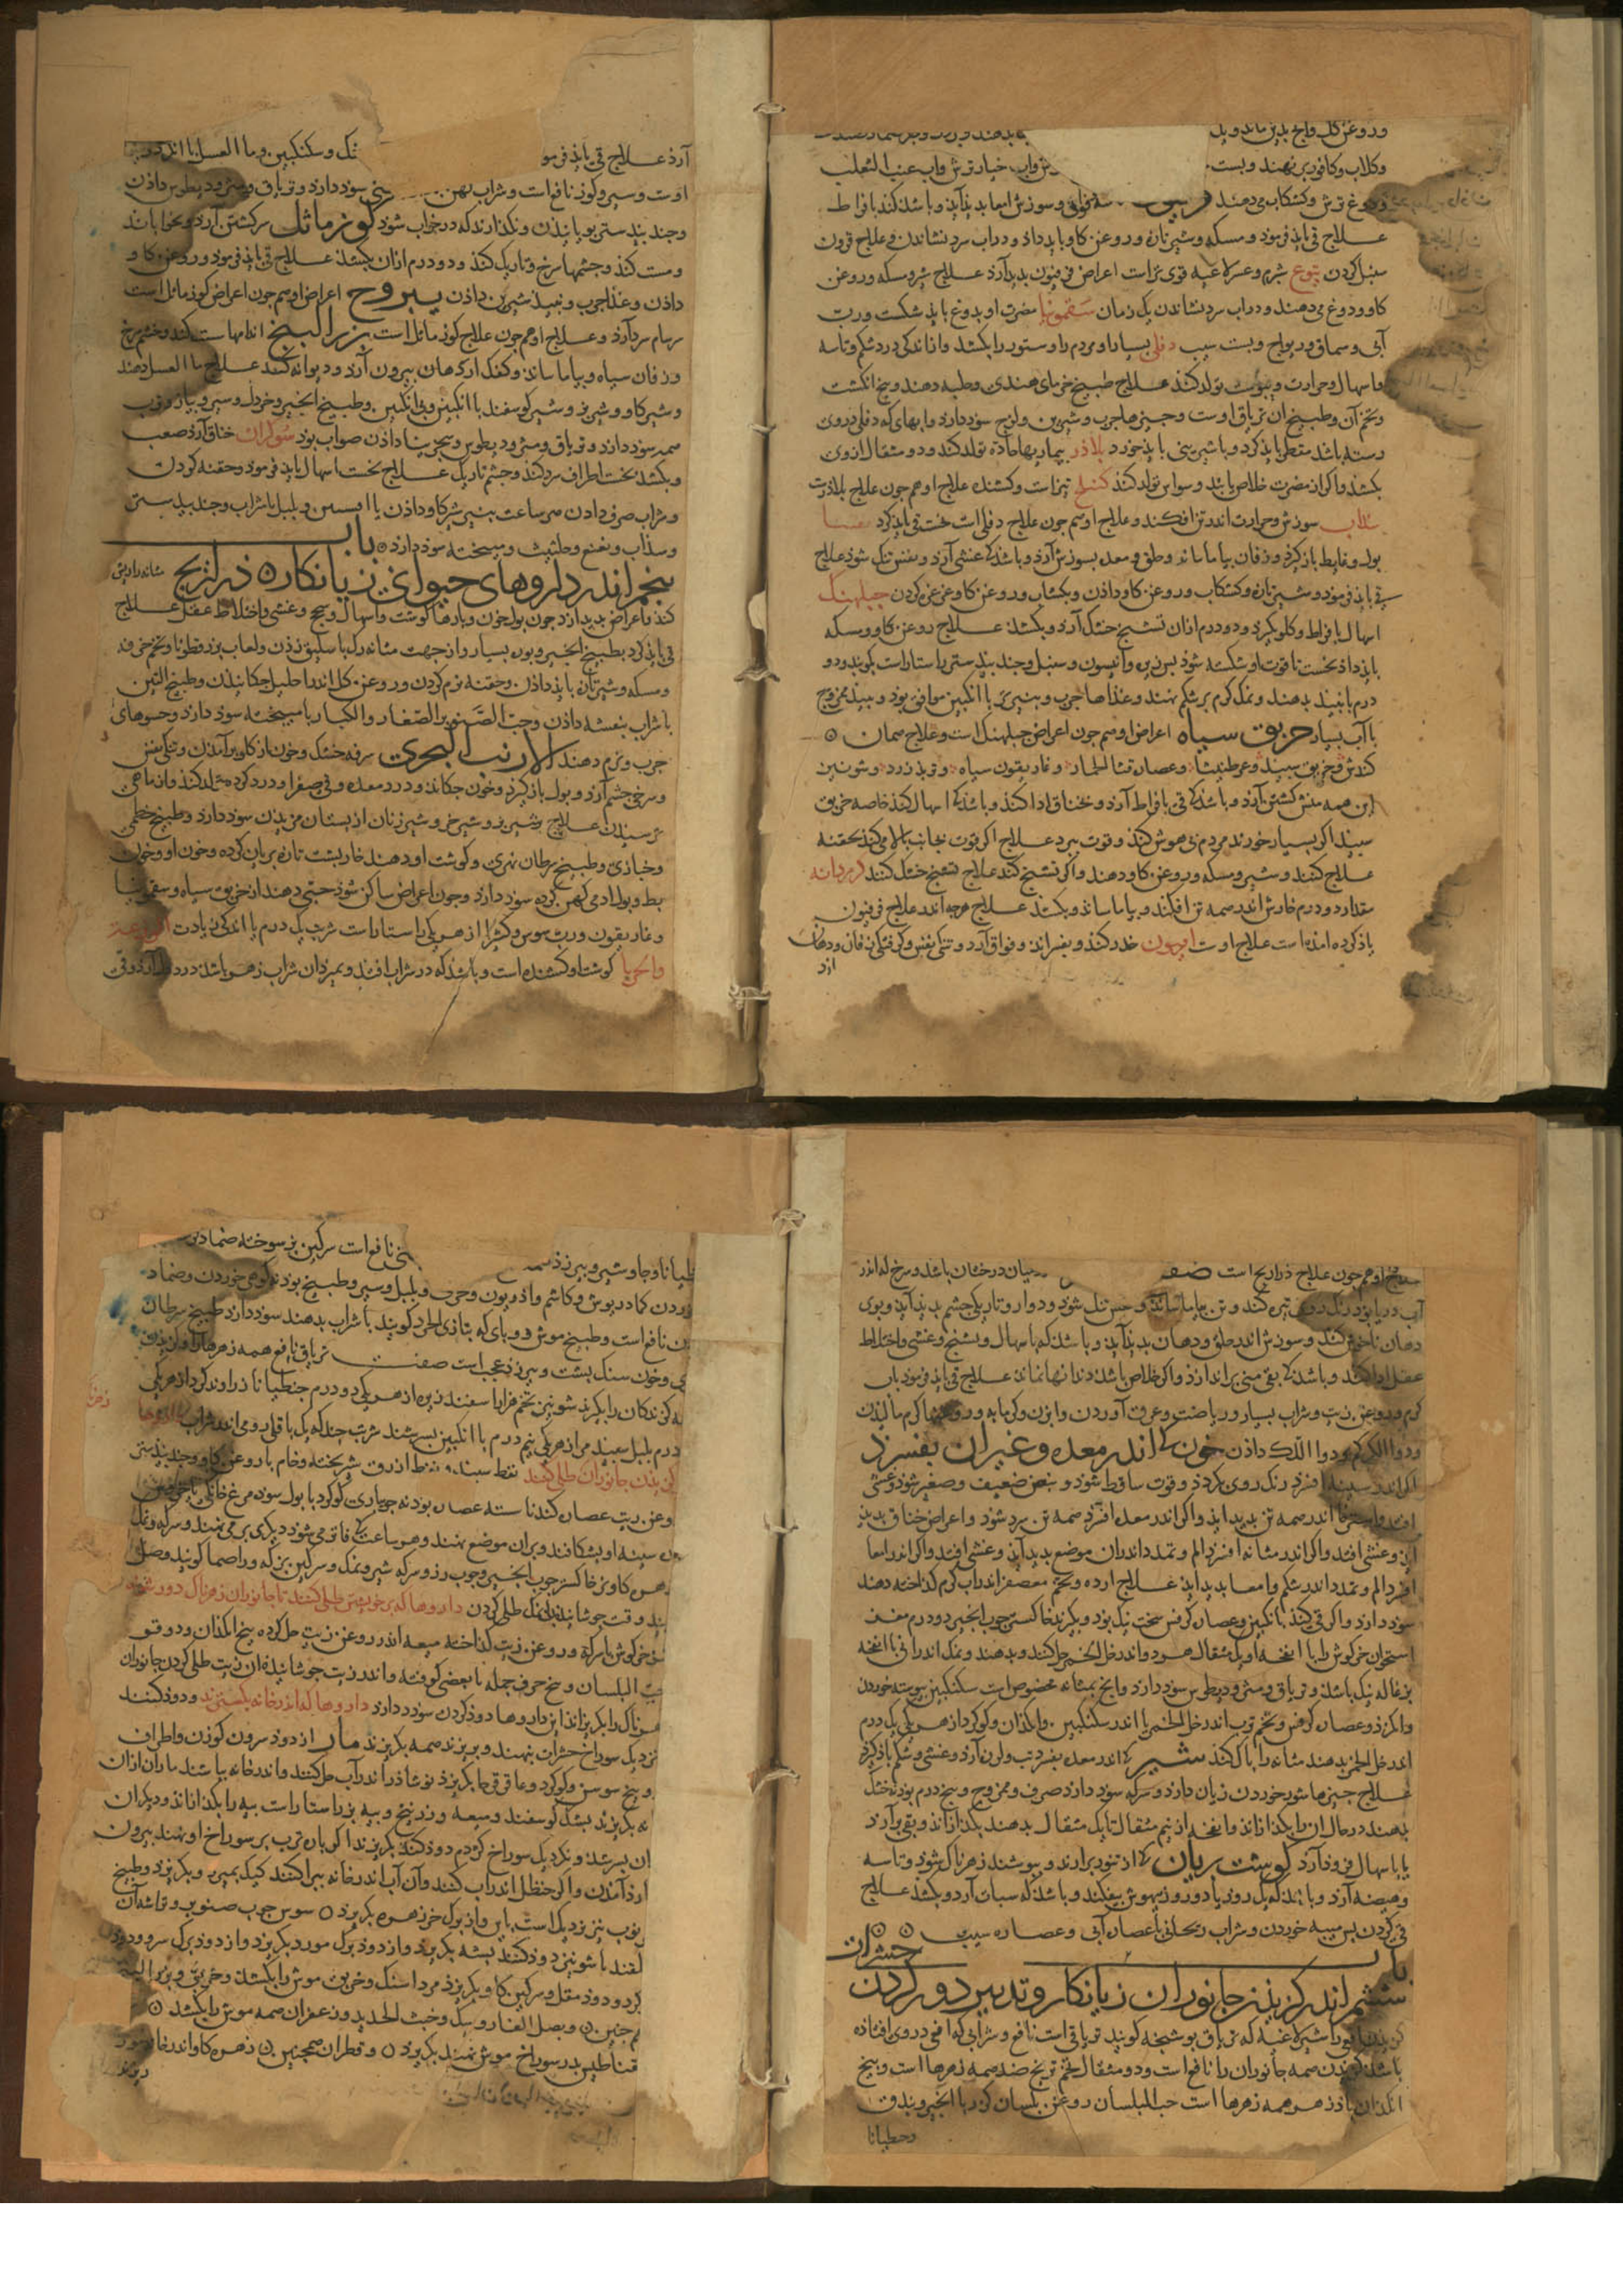 وروغن کل وانج بدین ماند وبک
وکلاب وکافور برنهند وبست خیار ترش واب عنب الثعلب
ودوغ ترش وکشکاب می دهند فواق وسوزش امعا بدید آید وباشد کند بافراط
علاج قی باید فرمود ومسکه وشیر تازه وروغن کاو باید داد ودراب سرد نشاندن وعلاج قرون
سنبل کردن یتوع شبرم وعسر لاعیه قوی تراست اعراض فرفیون بدید آرد علاج شیر ومسکه وروغن
کاو ودوغ می دهند ودراب سرد نشاندن یک زمان سقمونیا مضرت او بدوغ باید شکست وربّ
آبی وسماق وریواج وبست سیب دفلی بسیار او مردم را وستور را بکشد واندکی درد شکم وتاسه
واسهال وحرارت ویبوست تولد کند علاج طبیخ خرمای هندی وحلبه دهند وپنج انکشت
وتخم آن وطبیخ ان تریاق اوست وچیزهاء چرب وشیرین ولزج سود دارد وابهای که دفلی دروی
رسته باشد مقطر باید کرد وبا شیرینی باید خورد بلادر بیماریهاء حاده تولد کند ودو مثقال ازوی
بکشد واکر از مضرت خلاص یابند وسواس تولد کند علاج او هم جون علاج بلادرست
سوزش وحرارت اندر تن افکند وعلاج او هم جون علاج دفلی است نخست قی باید کرد
بول وغایط باز کیرد وزفان بیاماساند وحلق ومعده بسوزش آرد وباشد که غشی آرد ونفس تنک شود علاج
قی باید فرمود وشیر تازه وکشکاب وروغن کاو دادن وبکشاب وروغن کاو غرغره کردن جبلهنک
اسهال بافراط وکلو بکیرد ودو درم ازان تشنج خشک آرد وبکشد علاج روغن کاو ومسکه
باید داد نخست تا قوت او شکسته شود پس زیره وانیسون وسنبل وجند بیدستر راستاراست بکوبند ودو
درم با نبید بدهند ونمک کرم بر شکم نهند وغذاها چرب وپنیر تر با انکبین موافق بود ونبید ممزوج
با آب بسیار خربق سیاه اعراض او هم جون اعراض جبلهنک است وعلاج همان
کندش وخربق سپید وعرطنیثا وعصاره قثا الحمار وغاریقون سیاه وتربد زرد وشونیز
این همه منش کشتن آرد وباشد که قی بافراط آرد وبخناق ادا کند وباشد که اسهال کند خاصه خربق
سپید اکر بسیار خورند مردم بی هوش کند وقوت ببرد علاج اکر قوت بجانب بالا می کند بحقنه
علاج کنند وشیر ومسکه وروغن کاو دهند واکر تشنج کند علاج تشنج خشک کنند کرم دانه
مقدار دو درم خارش اندر همه تن افکند وبیاماساند وبکشد علاج هرچه اندر علاج فرفیون
یاذ کرده امده است علاج اوست افیون خدر کند وبفسراند وفواق آرد وتنکی نفس وکرفتکی زفان ودهان
ازد
آرد علاج قی باید فرمو نمک وسکنکبین وما العسل با اندکی
اوست وسیر وکوز نافع است وشراب کهن سود دارد وتریاق ومثرودیطوس دادن
وجند بیدستر بویانیدن ونکذارند که در خواب شود کوز ماثل سرکشتن آرد وبخواباند
ومست کند وجشمها سرخ وتاریک کند ودو درم ازان بکشد علاج قی باید فرمود وروغن کاو
دادن وغذا چرب ونبید شیرین دادن یبروح اعراض او هم جون اعراض کوز ماثل است
سرسام سرد آرد وعلاج او هم جون علاج کوز ماثل است بزر البنج اندامها سست کند وخشم سرخ
وزفان سیاه وبیاماساند وکفک از دهان بیرون آرد ودیوانه کند علاج ما العسل دهند
وشیر کاو وشیر خر وشیر کوسفند با انکبین وبی انکبین وطبیخ انجیر وخردل وسیر وپیاز وترب
همه سود دارد وتریاق ومثرودیطوس وسجزینا دادن صواب بود شوکران خناق آرد صعب
وبکشد نخست اطراف سرد کند وجشم تاریک علاج نخست اسهال باید فرمود وحقنه کردن
وشراب صرف دادن هر ساعت پس شیر کاو دادن یا افسنتین وپلپل با شراب وجند بیدستر
وسذاب ونعنع وحلتیث ومیبخته سود دارد باب
پنجم اندر داروهای حیوانی زیانکاره ذراریح مثانه را ریش
کند واعراض بدید آرد جون بول خون وپارها کوشت واسهال وسحج وغشی واختلاط عقل علاج
قی باید کرد بطبیخ انجیر وبوره بسیار واز جهت مثانه رک باسلیق زدن ولعاب بزرقطونا وتخم خرفه
ومسکه وشیر تازه باید دادن وحقنه نرم کردن وروغن کل اندر احلیل چکانیدن وطبیخ التین
با شراب بنفشه دادن وحبّ الصّنوبر الصّغار والکبار با میبخته سود دارد وحسوهای
چرب ونرم دهند الارنب البحری سرفه خشک وخون از کلو برآمدن وتنکی نفس
وسرخی چشم آرد وبول باز کیرد وخون چکاند ودرد معده وقی صفرا ودرد کرده تولد کند واز ماهی
ترسیدن علاج شیر بز وشیر خر وشیر زنان از پستان مزیدن سود دارد وطبیخ خطمی
وخبازی وطبیخ سرطان نهری وکوشت او دهند خارپشت تازه بریان کرده وخون او وخون
بط وبول ادمی کهن کرده سود دارد وجون اعراض ساکن شود حبّی دهند از خربق سیاه وسقمونیا
وغاریقون وربّ سوس وکثیرا از هر یکی راستاراست شربت یک درم یا اندکی زیادت
کوشت او کشنده است وباشد که در شراب افتد وبمیرد ان شراب زهر باشد درد آرد وقی
او هم جون علاج ذراریح است میان درختان باشد وسرخ که اندر
آب دریا بود رنک روی تیره کند وتن بیاماساند ونفس تنک شود ودوار وتاریکی چشم بدید آید وبوی
دهان ناخوش کند وسوزش اندر حلق ودهان بدید آید وباشد که باسهال وتشنج وغشی واختلاط
عقل ادا کند وباشد که بقی منی براندازد واکر خلاص باشد دندانها نماند علاج قی باید فرمود باب
کرم وروغن زیت وشراب بسیار وریاضت وعرق آوردن وآبزن وکرمابه وروغنها کرم مالیدن
ودوا الکرکم ودوا اللک دادن خون که اندر معده وغیر ان بفسرد
اکر اندر سینه افسرد رنک روی بکردد وقوت ساقط شود ونبض ضعیف وصغیر شود وغشی
افتد واسترخا اندر همه تن بدید آید واکر اندر معده افسرد همه تن سرد شود واعراض خناق بدید
آید وغشی افتد واکر اندر مثانه افسرد الم وتمدد اندران موضع بدید آید وغشی افتد واکر اندر امعا
افسرد الم وتمدد اندر شکم وامعا بدید اید علاج ارده وتخم معصفر اندر اب کرم کداخته دهند
سود دارد واکر قی کند بانکبین وعصاره کرفس سخت نیک بود وبکیرند خاکستر چوب انجیر دو درم مغز
استخوان خرکوش را با انفحه او یک مثقال هردو اندر خل الخمر حل کنند وبدهند ونمک اندرانی با انفحه
بزغاله نیک باشد وتریاق ومثرودیطوس سود دارد وانچ بمثانه مخصوص است سکنکبین پیوسته خوردن
واکر زد وعصاره کرفس وتخم ترب اندر خل الخمر یا اندر سکنکبین وانکذان وکوکرد از هر یکی یک درم
اندر خل الخمر بدهند مثانه را پاک کند شیر که اندر معده بفسرد تب ولرزه آرد وغشی وشکم باز کیرد
علاج چیزها شور خوردن زیان دارد وسرکه سود دارد صرف وممزوج وپنج درم پودنه خشک
بدهند درحال ان را بکذازاند وانفحه از نیم مثقال تا یک مثقال بدهند بکذازاند وبقی برآرد
یا باسهال فرود آرد کوشت بریان که از تنور برآرند وبپوشند زهرناک شود وتاسه
وهیضه آرد وباشد که یک روز یا دو روز بیهوش بیفکند وباشد که سبات آرد وبکشد علاج
قی کردن پس میبه خوردن وشراب ریحانی با عصاره آبی وعصاره سیب
باب حشرات
ششم اندر کزیدن جانوران زیانکار وتدبیر دور کردن
کزیدن افعی را شیر لاعیه که تریاق بوشنجه کویند تریاقی است نافع وشرابی که افعی دروی افتاده
باشد کزیدن همه جانوران را نافع است ودو مثقال تخم ترنج ضد همه زهرها است وبیخ
انکدان پاذزهر همه زهرها است حب البلسان روغن بلسان کزر با انجیر وبندق
وجنطیانا
نافع است سرکین بز سوخته ضماد
جنطیانا وجاوشیر وبیرزد
کردن کمادریوش وکاشم واذریون وحرف وپلپل وسیر وطبیخ پودنه کوهی خوردن وضماد
نافع است وطبیخ موش دوپای که بتازی الجرد کویند با شراب بدهند سود دارد طبیخ سرطان
وخون سنک پشت وبیرزد عجب است صفت تریاق نافع همه زهرها
کزندکان را بکیرند شونیز تخم هزار اسفند زیره از هر یکی دو درم جنطیانا زراوند کرد از هر یکی
درم پلپل سپید مر از هر یکی نیم درم با انکبین بسرشند شربت چند که یک باقلی رومی اندر شراب داروها
کی بدان جانوران طلی کنند نفط سپید ونفط ازرق شیربخته وخام با روغن کاو وجند بیدستر
روغن زیت عصاره کندنا سته عصاره پودنه جویباری کوکرد با بول سوده مرغ خانکی
سینه او بشکافند وبران موضع نهند وهر ساعت که فاتر می شود دیکری بر می نهند وسرکه ونمک
وزهره کاو تر خاکستر چوب انجیر وچوب رز وسرکه شیر ونمک وسرکین بز که ورا صما کویند وصل
وقت جوشانیدان نمک طلی کردن داروها که بر خویشتن طلی کنند تا جانوران زهرناک دور شوند
خرکوش با سرکه وروغن زیت کداخته میعه اندر روغن زیت حل کرده بیخ انکذان ودوقو
حب البلسان وبیخ حرف جمله یا بعضی کوفته واندر زیت جوشانیده ان زیت طلی کردن جانوران
زهرناک را بکریزاند این داروها دود کردن سود دارد داروها که اندر خانه بکسترند ودود کنند
نزدیک سوراخ حشرات بنهند وبریزند همه بکریزند مار از دود سرون کوزن واظلاف
وبیخ سوسن وکوکرد وعاقرقرحا بکریزد نوشاذر اندر آب حل کنند واندر خانه بپاشند ماران ازان
نه بکریزند بشک کوسفند ومیعه وزرنیخ وپیه بز راستاراست پیه را بکذازاند ودیکران
ان بسرشد ونزدیک سوراخ کژدم دود کنند بکریزند اکر پاره ترب بر سوراخ او نهند بیرون
ارد آمدن واکر حنظل اندر آب کنند وآن آب اندر خانه بپراکنند کیک بمیرد وبکریزد وطبیخ
نوب نیز نزدیک است باین واز بوی خرزهره بکریزد سوس چوب صنوبر وتراشه آن
کنند با شونیز دود کنند پشه بکریزد واز دود برک مورد بکریزد واز دود برک سرو ودود
کرد ودود مقل وسرکین کاو بکریزد مرداسنک وخربق موش را بکشد وخربق وبزر البنج
هم چنین وبصل الفار وسک وخبث الحدید وزعفران همه موش را بکشد
قناطیس بدر سوراخ موش نهند بکریزد وقطران همچنین زهره کاو اندر خانه
دیزند